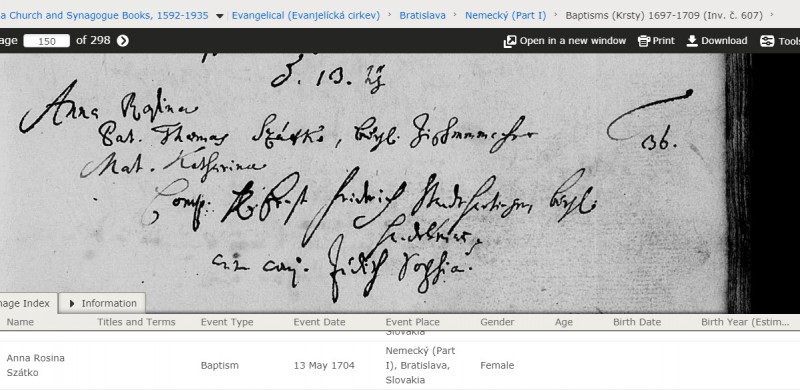 a Church and Synagogue Books, 1592-1935 ▼ Evangelical (Evanjelícká cirkev) › Bratislava › Nemecký (Part I) › Baptisms (Krsty) 1697-1709 (Inv. č. 607) ›
age 150 of 298 Open in a new window Print Download Tools
13.
Anna Rosina
Pat. Thomas Szátkó,
Mat. Katharina
36.
Comp. Ernst Fridrich
cum conj. Judith Sophia.
mage Index Information
Name Titles and Terms Event Type Event Date Event Place Gender Age Birth Date Birth Year (Estim...
Slovakia
Anna Rosina Szátko Baptism 13 May 1704 Nemecký (Part I), Bratislava, Slovakia Female